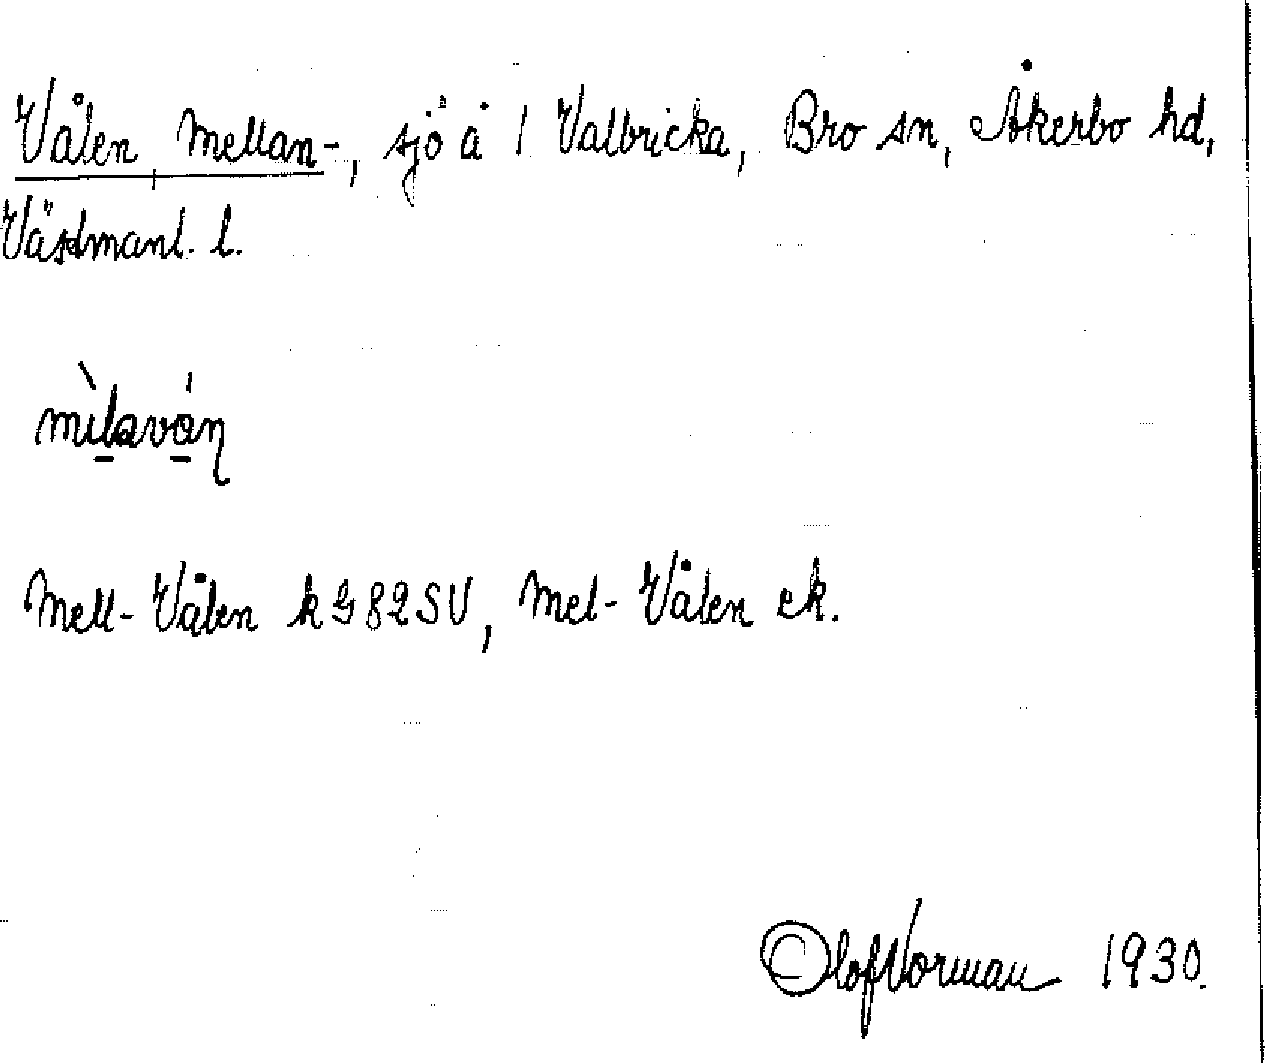 Vålen Mellan-, sjö å 1 Valbricka, Bro sn, Åkerbo hd,
Västmanl. l.
Mell-Vålen k G 82 SV, Mel-Vålen ek.
Olof Norman 1930.